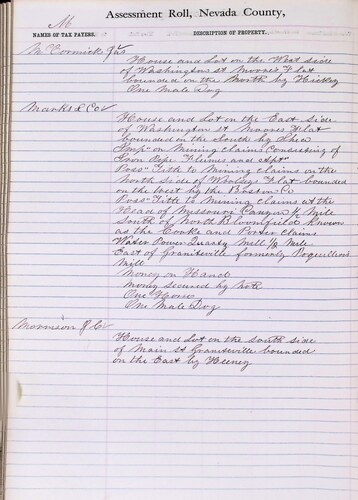 M.
Assessment Roll, Nevada County,
NAMES OF TAX PAYERS. DESCRIPTION OF PROPERTY.
McCormick Jas
House and Lot on the West side
of Washington st Moores Flat
bounded on the North by Hickey
One Male Dog
Marks & Co
House and Lot on the East side
of Washington st Moores Flat
bounded on the South by
Imp" on Mining Claims Consisting of
Iron Pipe Flumes and
Poss" Title to Mining claims on the
North Side of Flat bounded
on the West by the Boston Co
Poss" Title to Mining claims at the
Head of Missouri Canyon ½ Mile
South of North Bloomfield known
as the Cooke and Porter Claims
Water Power Quartz Mill ½ Mile
East of Graniteville formerly
Mill
Money on Hand
Money secured by note
One Horse
One Male Dog
Morrison J C
House and Lot on the south side
of Main st Graniteville bounded
on the East by